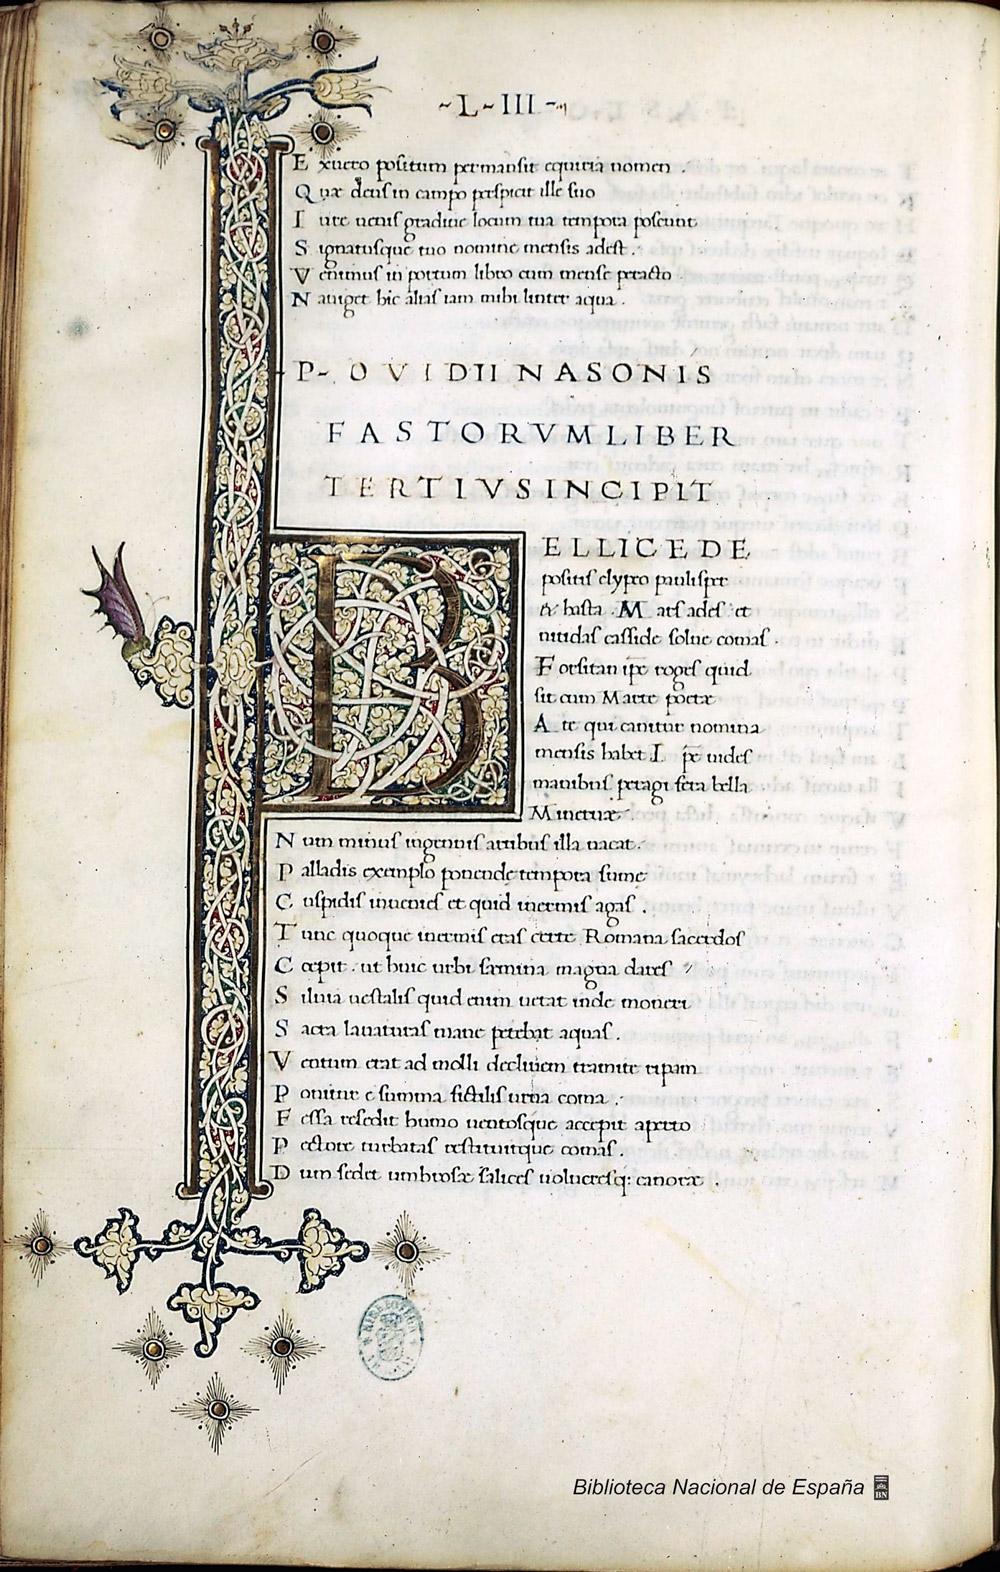 ~L~III~
Exuero positum permansit equiria nomen .
Quæ deus in campo prospicit ille suo
Iure uenis gradiue locum tua tempora poscunt
Signatusque tuo nomine mensis adest .
Venimus in portum libro cum mense peracto
Nauiget hic alias iam mihi linter aqua .
P- OVIDII NASONIS
FASTORVM LIBER
TERTIVS INCIPIT
BELLICE DE
positis clypeo paulisper
& hasta . Mars ades et
nitidas casside solue comas .
Forsitan ip̅e roges quid
sit cum Marte poetæ
A te qui canitur nomina
mensis habet . I p̅e uides
manibus peragi fera bella
Mineruæ .
Num minus ingenuis artibus illa uacat .
Palladis exemplo ponende tempora sume
Cuspidis inuenies et quid inermis agas .
Tunc quoque inermis eras cum te Romana sacerdos
Cœpit . ut huic urbi semina magna dares
Siluia uestalis quid enim uetat inde moueri
Sacra lauaturas mane petebat aquas .
Ventum erat ad molli decliuem tramite ripam
Ponitur e summa fictilis urna coma .
Fessa resedit humo uentosque accepit aperto
Pectore turbatas restituitque comas .
Dum sedet umbrosæ salices uolucresq; canoræ .
Biblioteca Nacional de España
BN